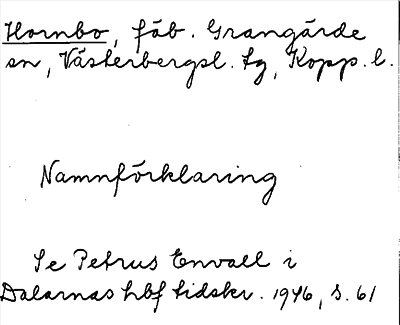 Hornbo, fäb. Grangärde
sn, Västerbergsl. tg, Kopp. l.
Namnförklaring
Se Petrus Envall i
Dalarnas hbf tidskr. 1946, s. 61